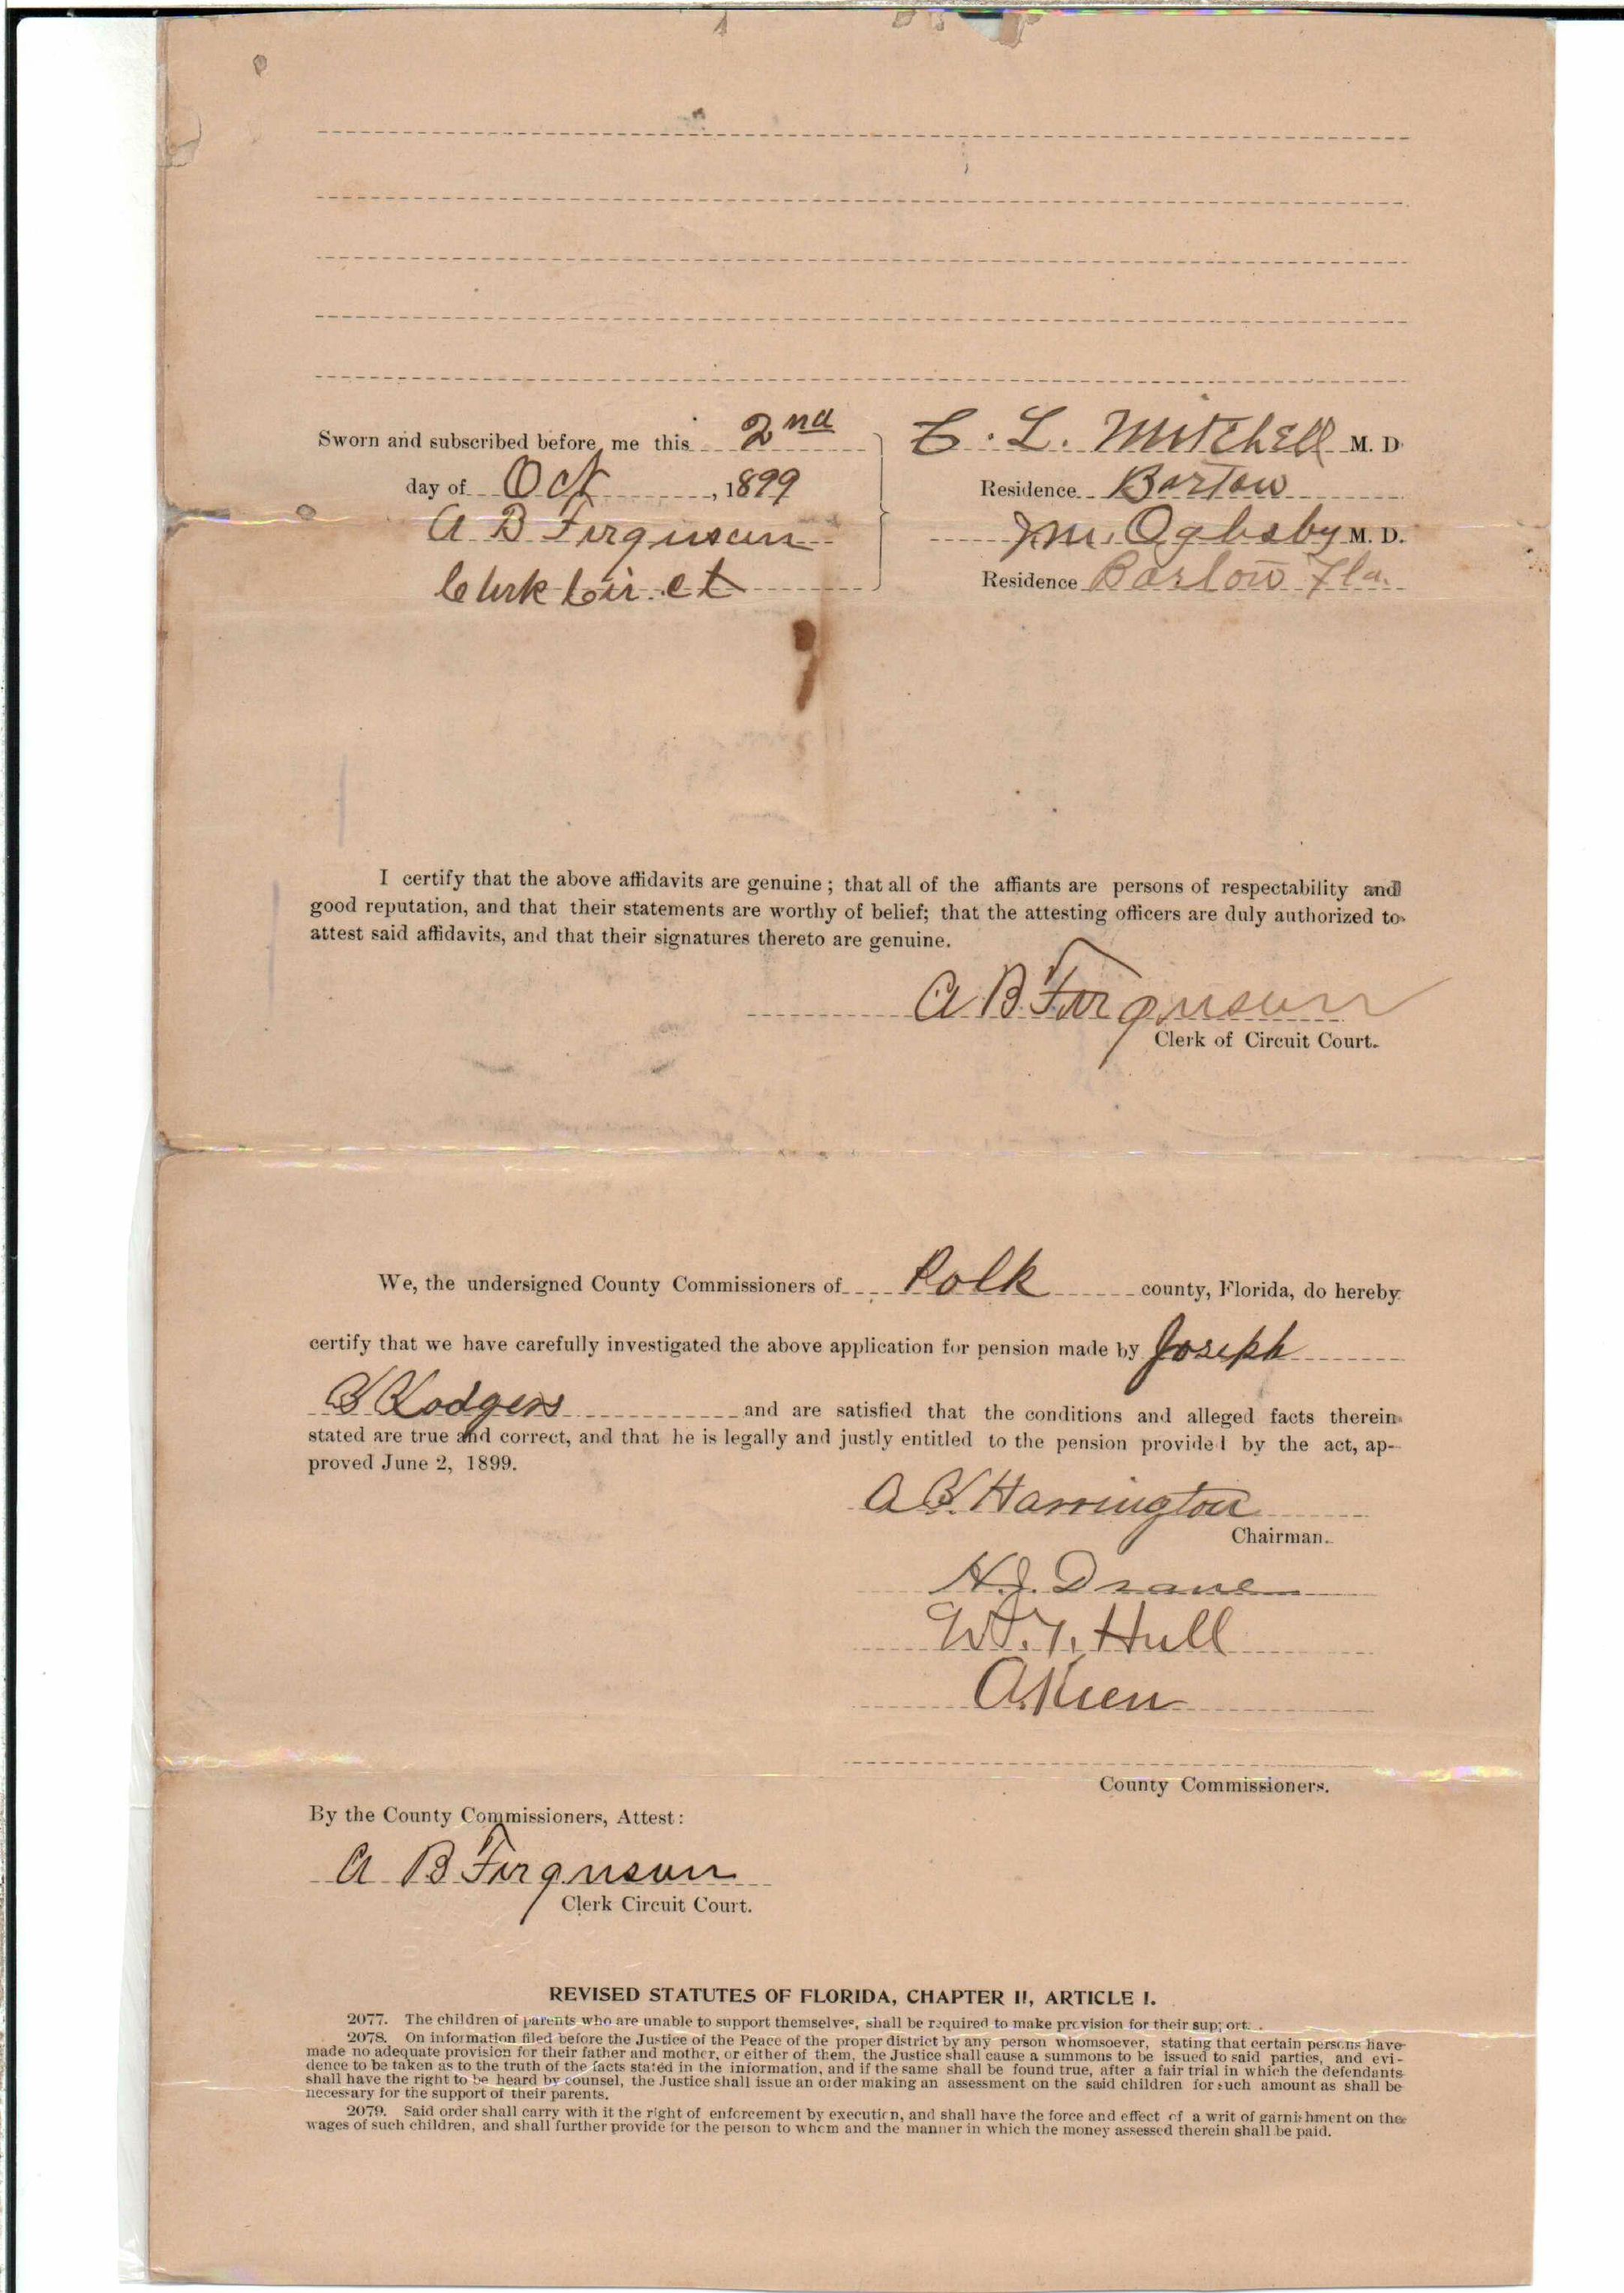 Sworn and subscribed before me this 2nd
day of Oct, 1899
A B Ferguson
Clerk Cir. Ct
C. L. Mitchell M. D.
Residence Bartow
J.M. Oglesby M. D.
Residence Bartow Fla.
I certify that the above affidavits are genuine; that all of the affiants are persons of respectability and
good reputation, and that their statements are worthy of belief; that the attesting officers are duly authorized to
attest said affidavits, and that their signatures thereto are genuine.
A B Ferguson
Clerk of Circuit Court.
We, the undersigned County Commissioners of Polk county, Florida, do hereby
certify that we have carefully investigated the above application for pension made by Joseph
Rodgers and are satisfied that the conditions and alleged facts therein
stated are true and correct, and that he is legally and justly entitled to the pension provided by the act, ap-
proved June 2, 1899.
A B Harrington
Chairman.
H.J. Drane
W.T. Hull
A. Keen
County Commissioners.
By the County Commissioners, Attest:
A B Ferguson
Clerk Circuit Court.
REVISED STATUTES OF FLORIDA, CHAPTER II, ARTICLE I.
2077. The children of parents who are unable to support themselves, shall be required to make provision for their support.
2078. On information filed before the Justice of the Peace of the proper district by any person whomsoever, stating that certain persons have
made no adequate provision for their father and mother, or either of them, the Justice shall cause a summons to be issued to said parties, and evi-
dence to be taken as to the truth of the facts stated in the information, and if the same shall be found true, after a fair trial in which the defendants
shall have the right to be heard by counsel, the Justice shall issue an order making an assessment on the said children for such amount as shall be
necessary for the support of their parents.
2079. Said order shall carry with it the right of enforcement by execution, and shall have the force and effect of a writ of garnishment on the
wages of such children, and shall further provide for the person to whom and the manner in which the money assessed therein shall be paid.